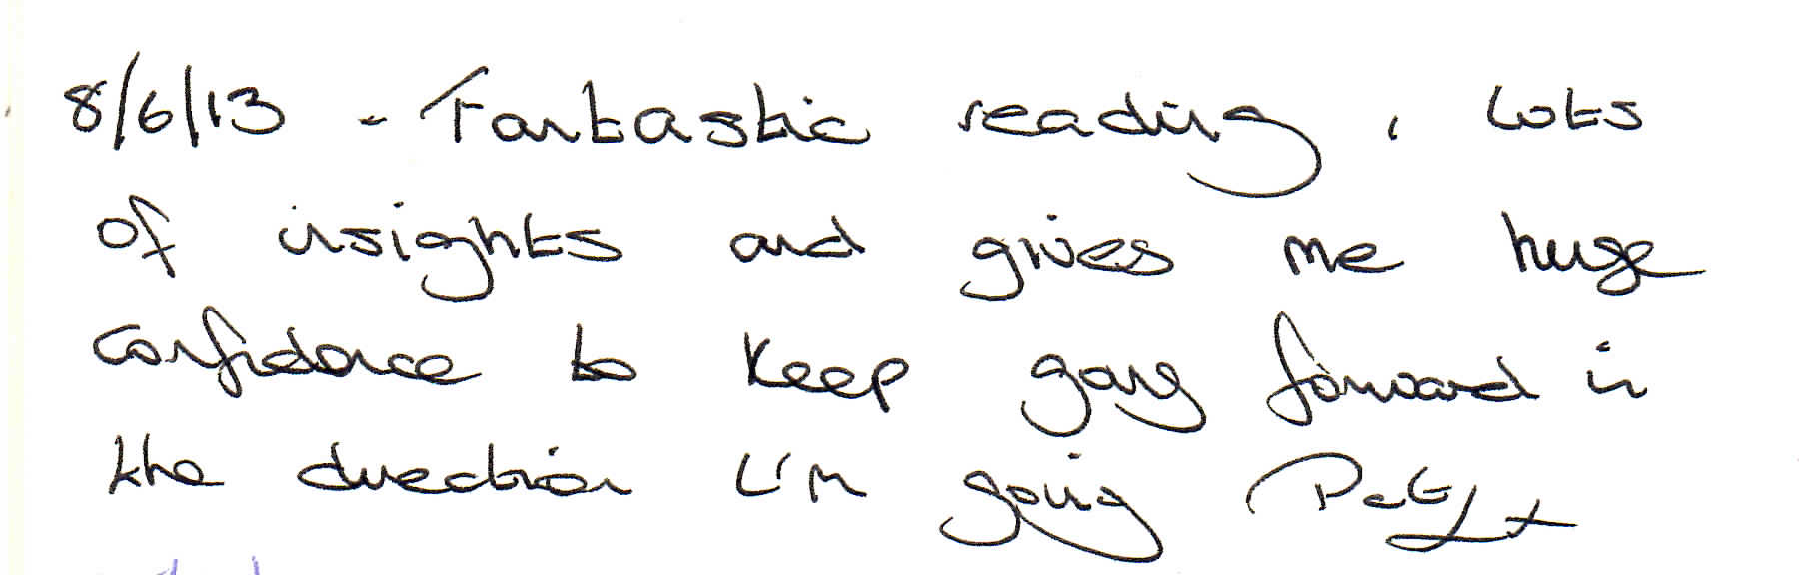 8/6/13 - Fantastic reading, lots
of insights and gives me huge
confidence to keep going forward in
the direction I'm going